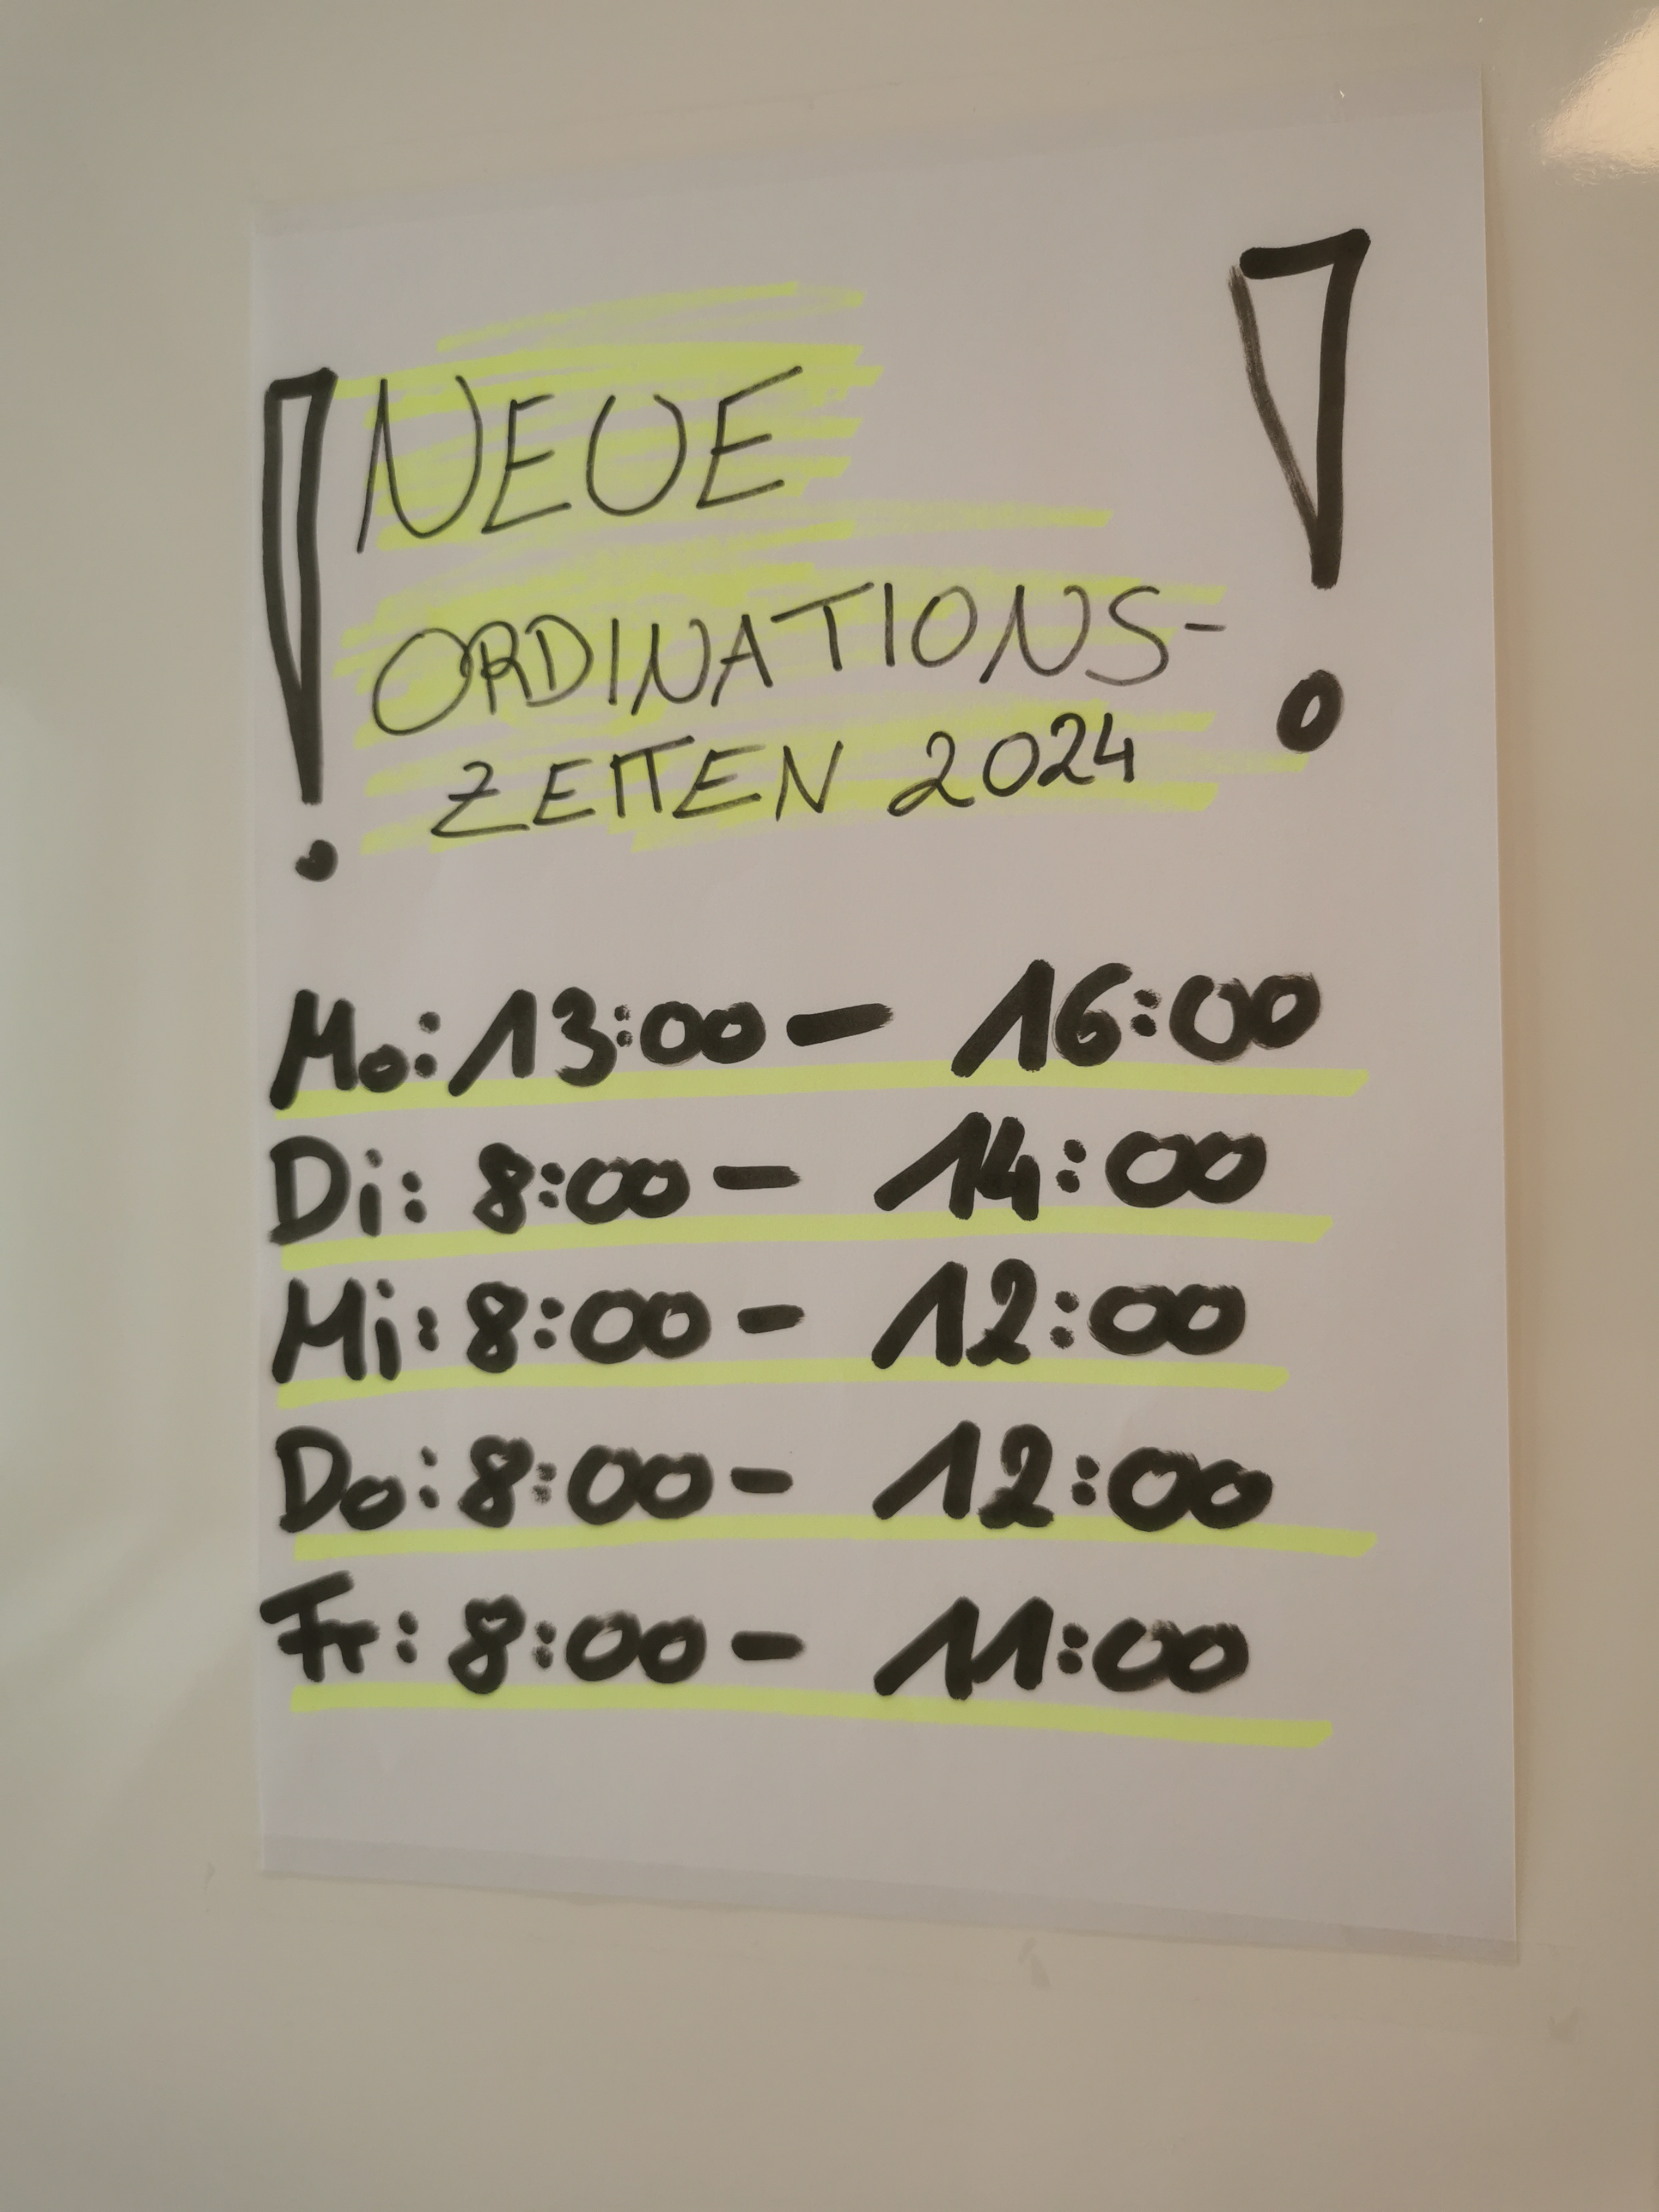 ! NEUE !
ORDINATIONS-
ZEITEN 2024
Mo: 13:00 - 16:00
Di: 8:00 - 14:00
Mi: 8:00 - 12:00
Do: 8:00 - 12:00
Fr: 8:00 - 11:00